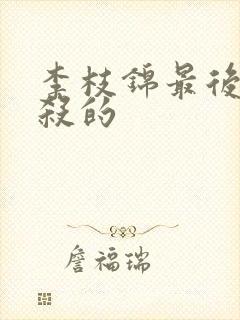 李枝錦最後
殺的
詹福瑞